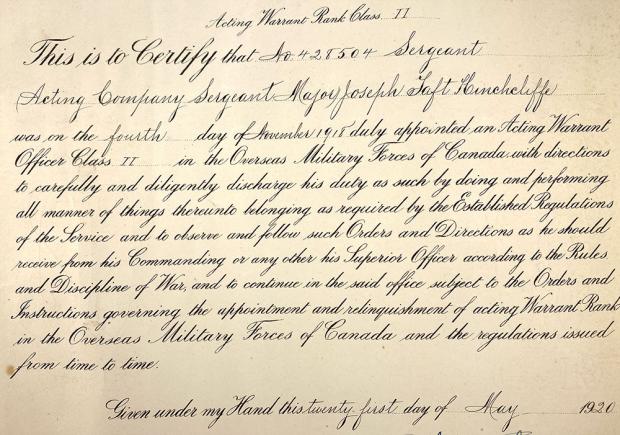 Acting Warrant Rank Class II
This is to Certify that No. 428504 Sergeant
(Acting Company Sergeant Major) Joseph Taft Hinchcliffe
was on the fourth day of November 1918 duly appointed an Acting Warrant
Officer Class II in the Overseas Military Forces of Canada with directions
to carefully and diligently discharge his duty as such by doing and performing
all manner of things thereunto belonging as required by the Established Regulations
of the Service and to observe and follow such Orders and Directions as he should
receive from his Commanding or any other his Superior Officer according to the Rules
and Discipline of War, and to continue in the said office subject to the Orders and
Instructions governing the appointment and relinquishment of acting Warrant Rank
in the Overseas Military Forces of Canada and the regulations issued
from time to time.
Given under my Hand this twenty first day of May 1920